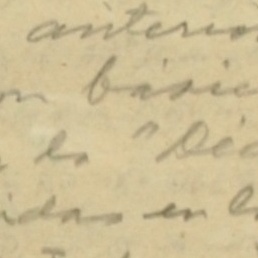 anterio
on básic
lo "Déc
idas en l